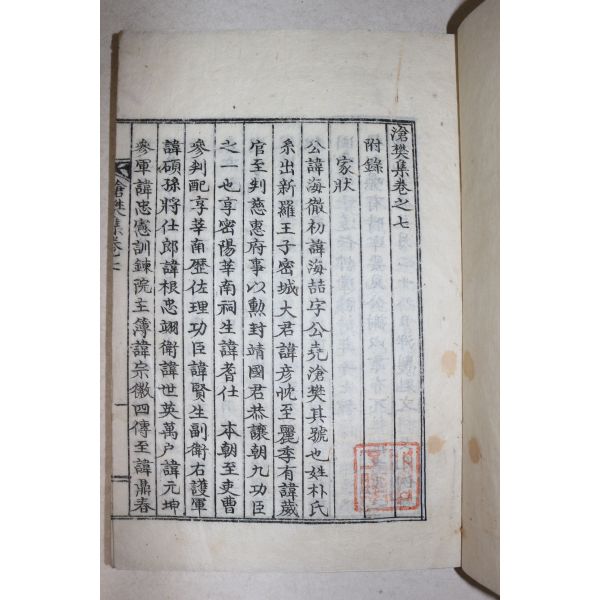 滄樊集卷之七
附錄
家狀
公諱海徹初諱海喆字公堯滄樊其號也姓朴氏
系出新羅王子密城大君諱彦忱至麗季有諱葳
官至判慈惠府事以勳封靖國君恭讓朝九功臣
之一也享密陽莘南祠生諱耆仕 本朝至吏曹
參判配享莘南歷佐理功臣諱賢生副衛右護軍
諱碩孫將仕郎諱根忠翊衛諱世英萬戶諱元坤
參軍諱忠憲訓鍊院主簿諱宗徽四傳至諱鼎春
滄樊集卷七